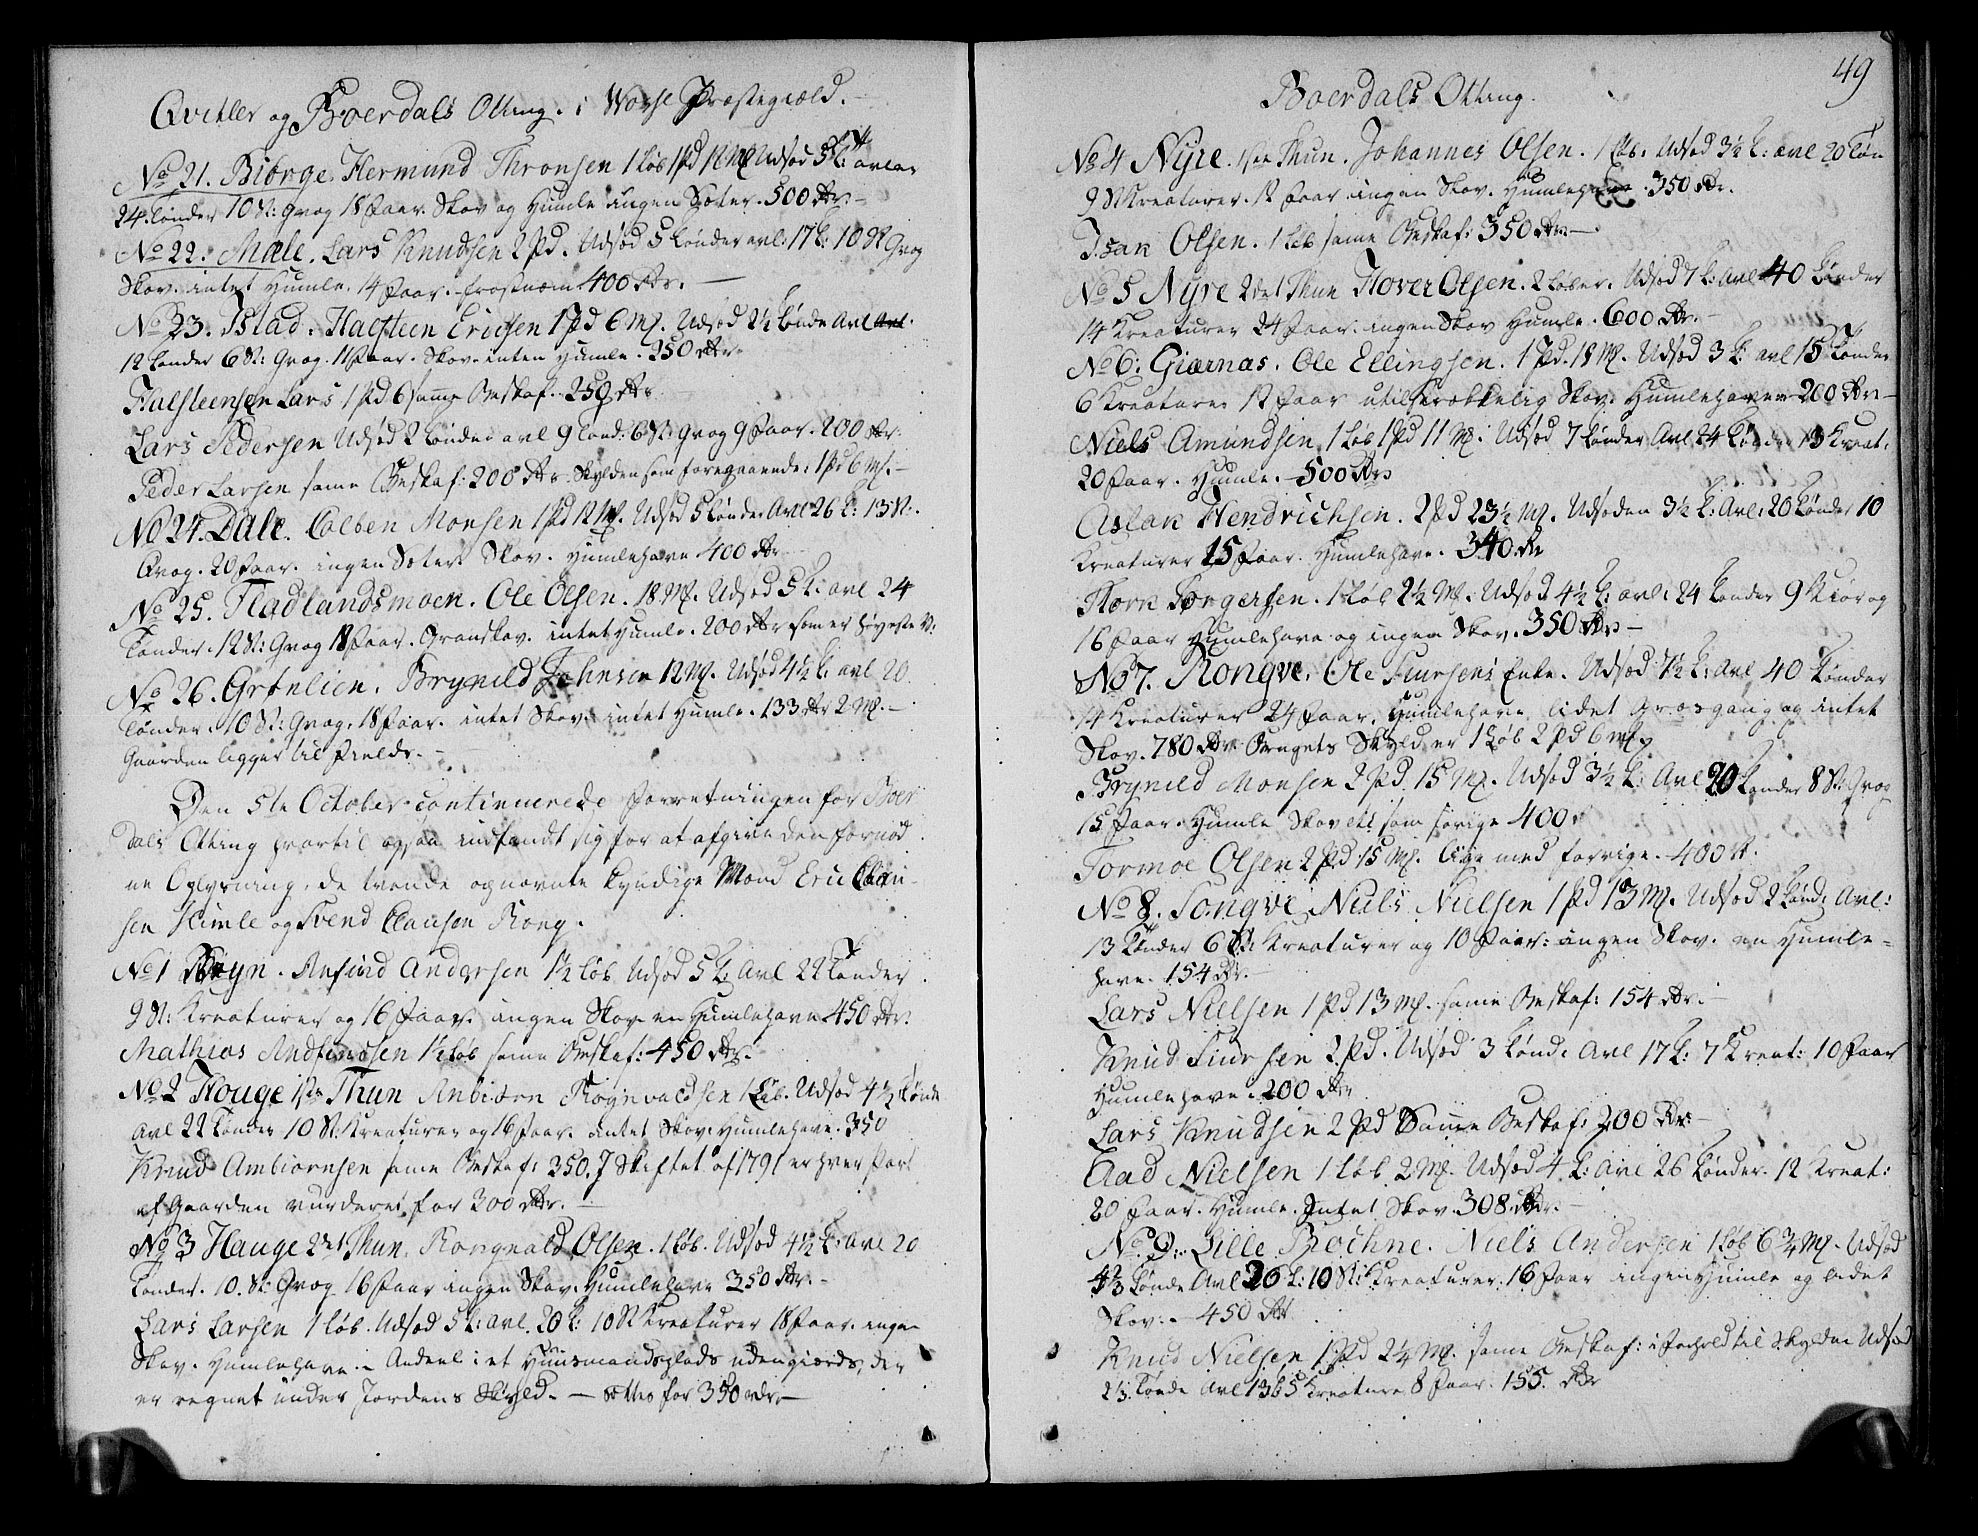 Qvitler og Boerdals Otting. i Vorse Præstegield.
No 21. Biørge. Hermund Thronsen 1 Løb 1 Pd 12 Mf Udsød 5 t: avler
24 tønder 10 St: qvæg 18 faar. Skov og Humle ingen Sæter. 500 Rdr.
No 22: Mæle. Lars Knudsen 2 Pd. Udsød 5 tønder avl: 17 t: 10 St qvæg
Skov. intet Humle. 14 faar. frostnæm 400 Rdr.
No 23. Istad. Halsteen Ericsen 1 Pd 6 Mf. Udsød 2½ tønde Avl
12 tønder 6 St: qvæg. 11 faar. Skov. inten Humle. 250 Rdr
Halsteensen Lars 1 Pd 6 samme Beskaf. 250 Rdr
Lars Pedersen Udsød 2 tønder avl 9 tønd: 6 St: qvæg 9 faar. 200 Rdr.
Peder Larsen same Beskaf: 200 Rdr. Skylden som foregaaende: 1 Pd 6 Mf.
No 24. Dale. Colben Monsen 1 Pd 12 Mf. Udsød 5 tønder Avl 26 t: 13 St:
Qvæg. 20 faar. ingen Sæter Skov. Humlehave 400 Rdr
No 25. Fladlandsmoen. Ole Olsen. 18 Mf. Udsød 5 t: avl 24
Tønder. 12 St: qvæg 18 faar. Granskov. intet Humle. 200 Rdr som er høyeste V:
No 26. Grønlien. Brynild Johnsen 12 Mf. Udsød 4½ t: avl 20
tønder. 10 St: qvæg. 18 faar. intet Skov. intet Humle. 133 Rdr 2 Mf.
Gaarden ligger til fields.
Den 5te October continuerede forretningen for Boer
dals Otting hvortil ogsaa indfandt sig for at afgive den fornød
ne Oplysning, de tvende ognævnte kyndige Mænd Eric Clau-
sen Himle og Svend Clausen Rong.
No 1 Bryn. Anfind Andersen 1½ Løb Udsød 5 t: Avl 22 tønder
9 St: Kreaturer og 16 faar. ingen Skov en Humlehave 450 Rdr.
Mathias Andfindsen 1½ Løb same Beskaf: 450 Rdr.
No 2 Houge 1ste Thun Anbiørn Rognvaldsen 1 Løb. Udsød 4½ tønde
Avl 22 tønder 10 St: Kreaturer og 16 faar. intet Skov. Humlehave. 350
Knud Ambiørnsen same Beskaf: 350. J Skiftet af 1791 er hver part
af Gaarden vurderet for 300 Rdr.
No 3 Hauge 2det Thun. Rongnald Olsen. 1 Løb. Udsød 4½ t: Avl 20
tønder. 10. St: qvæg 16 faar ingen Skov. Humlehave 350 Rdr.
Lars Larsen 1 Løb. Udsød 5 t: avl. 20 t: 10 St Kreaturer 18 faar. ingen
Skov. Humlehave. Andeel i et Huusmandsplads udengierds, der
er regnet under Jordens Skyld. settes for 350 Rdr.
49
Boerdals Otting.
No 4 Nyre. 1ste Thun. Johannes Olsen. 1 Løb. Udsød 3½ t: avl 20 tøn
9 St Kreaturer. 12 faar ingen Skov. Humlehave. 350 Rdr.
Isak Olsen. 1 Løb same Beskaf: 350 Rdr.
No 5 Nyre 2det Thun Hover Olsen. 2 Løber. Udsød 7 t: avl 40 tønder
14 Kreaturer 24 faar. ingen Skov Humle. 600 Rdr.
No 6: Giærnas. Ole Ellingsen. 1 Pd. 18 Mf. Udsød 3 t: avl 15 tønder
6 Kreaturer 12 faar utilstrækkelig Skov. Humlehaver 200 Rdr
Niels Amundsen 1 Løb 1 Pd 11 Mf. Udsød 7 tønder Avl 24 tønder 13 Kreat:
20 faar. Humle. 500 Rdr
Aslak Hendrichsen. 2 Pd 23½ Mf. Udsøden 3½ t: Avl: 20 tønder 10
Kreaturer 15 faar. Humlehave. 340 Rdr
Torgersen. 1 Løb 2½ Mf. Udsød 4½ t: avl: 24 tønder 9 Kiør og
16 faar Humlehave og ingen Skov. 350 Rdr
No 7. Rongve. Ole Siursens Enke. Udsød 7½ t: Avl 40 tønder
14 Kreaturer 24 faar. Humlehave. lidet Græsgang og intet
Skov. 780 Rdr. Brugets Skyld er 1 Løb 2 Pd 6 Mf
Brynild Monsen 2 Pd. 15 Mf. Udsød 3½ t: Avl 20 tønder 8 St: qvæg
15 faar. Humle Skov som forige 400.
Tormoe Olsen 2 Pd 15 Mf. lige med forrige. 400 Rdr.
No 8. Songve Niels Nielsen 1 Pd 13 Mf. Udsød 2 tønd: Avl:
13 tønder 6 St: Kreaturer og 10 faar: ingen Skov. en Humle-
have. 154 Rdr.
Lars Nielsen 1 Pd 13 Mf. same Beskaf: 154 Rdr.
Knud Siursen 2 Pd. Udsød 3 tønd: Avl 17 t: 7 Kreat: 10 faar
Humlehave. 200 Rdr
Lars Knudsen 2 Pd Same Beskaf: 200 Rdr.
Aad Nielsen 1 Løb 2 Mf. Udsød 4 t: Avl 26 tønder. 12 Kreat:
20 faar. Humle. Intet Skov. 308 Rdr.
No 9. Lille Bochne. Niels Andersen 1 Løb 6¾ Mf. Udsød
4⅓ tønde Avl 26 t: 10 St: Kreaturer. 16 faar ingen Humle og lidet
Skov. 450 Rdr
Knud Nielsen 1 Pd 2¼ Mf. same Beskaf: i forhold til Skylden Udsød
2⅓ tønde Avl 13 t 5 Kreature 8 faar. 155. Rdr